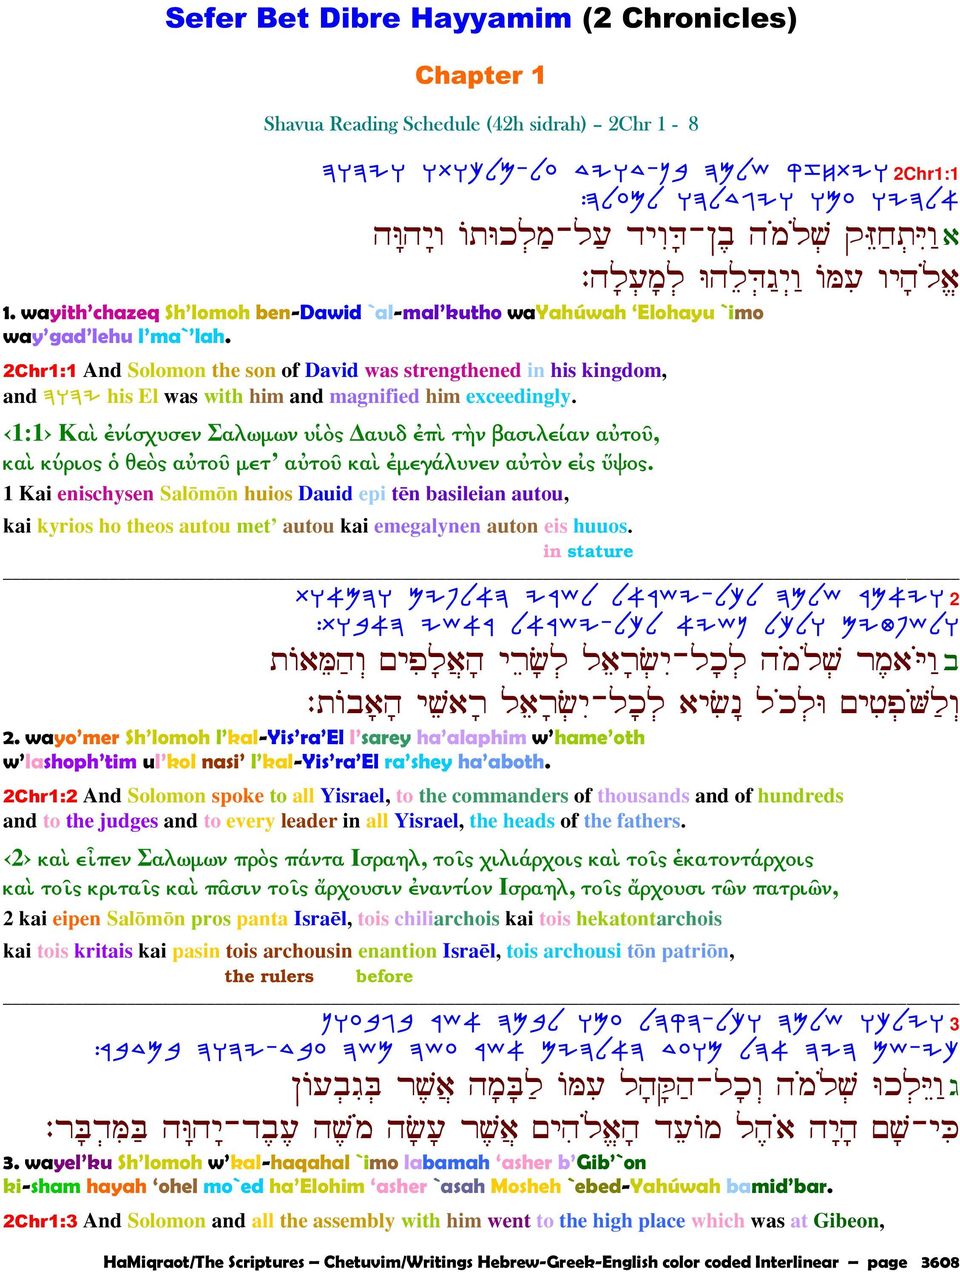 Sefer Bet Dibre Hayyamim (2 Chronicles)
Chapter 1
Shavua Reading Schedule (42h sidrah) – 2Chr 1 - 8
2Chr1:1 𐤅𐤉𐤕𐤇𐤆𐤒 𐤔𐤋𐤌𐤄 𐤁𐤍-𐤃𐤅𐤉𐤃 𐤏𐤋-𐤌𐤋𐤊𐤅𐤕𐤅 𐤅𐤉𐤄𐤅𐤄
𐤀𐤋𐤄𐤉𐤅 𐤏𐤌𐤅 𐤅𐤉𐤂𐤃𐤋𐤄𐤅 𐤋𐤌𐤏𐤋𐤄:
א וַיִּתְחַזֵּק שְׁלֹמֹה בֶן־דָּוִיד עַל־מַלְכוּתוֹ וַיהוָּה
אֱלֹהָיו עִמּוֹ וַיְגַדְּלֵהוּ לְמָעְלָה׃
1. wayith'chazeq Sh'lomoh ben-Dawid `al-mal'kutho waYahúwah 'Elohayu `imo
way'gad'lehu l'ma`'lah.
2Chr1:1 And Solomon the son of David was strengthened in his kingdom,
and 𐤉𐤄𐤅𐤄 his El was with him and magnified him exceedingly.
‹1:1› Καὶ ἐνίσχυσεν Σαλωμων υἱὸς Δαυιδ ἐπὶ τὴν βασιλείαν αὐτοῦ,
καὶ κύριος ὁ θεὸς αὐτοῦ μετ' αὐτοῦ καὶ ἐμεγάλυνεν αὐτὸν εἰς ὕψος.
1 Kai enischysen Salōmōn huios Dauid epi tēn basileian autou,
kai kyrios ho theos autou met' autou kai emegalynen auton eis huuos.
in stature
2 𐤅𐤉𐤀𐤌𐤓 𐤔𐤋𐤌𐤄 𐤋𐤊𐤋-𐤉𐤔𐤓𐤀𐤋 𐤋𐤔𐤓𐤉 𐤄𐤀𐤋𐤐𐤉𐤌 𐤅𐤄𐤌𐤀𐤅𐤕
𐤅𐤋𐤔𐤐𐤈𐤉𐤌 𐤅𐤋𐤊𐤋 𐤍𐤔𐤉𐤀 𐤋𐤊𐤋-𐤉𐤔𐤓𐤀𐤋 𐤓𐤀𐤔𐤉 𐤄𐤀𐤁𐤅𐤕:
ב וַיֹּאמֶר שְׁלֹמֹה לְכָל־יִשְׂרָאֵל לְשָׂרֵי הָאֲלָפִים וְהַמֵּאוֹת
וְלַשֹּׁפְטִים וּלְכֹל נָשִׂיא לְכָל־יִשְׂרָאֵל רָאשֵׁי הָאָבוֹת׃
2. wayo'mer Sh'lomoh l'kal-Yis'ra'El l'sarey ha'alaphim w'hame'oth
w'lashoph'tim ul'kol nasi' l'kal-Yis'ra'El ra'shey ha'aboth.
2Chr1:2 And Solomon spoke to all Yisrael, to the commanders of thousands and of hundreds
and to the judges and to every leader in all Yisrael, the heads of the fathers.
‹2› καὶ εἶπεν Σαλωμων πρὸς πάντα Ισραηλ, τοῖς χιλιάρχοις καὶ τοῖς ἑκατοντάρχοις
καὶ τοῖς κριταῖς καὶ πᾶσιν τοῖς ἄρχουσιν ἐναντίον Ισραηλ, τοῖς ἄρχουσι τῶν πατριῶν,
2 kai eipen Salōmōn pros panta Israēl, tois chiliarchois kai tois hekatontarchois
kai tois kritais kai pasin tois archousin enantion Israēl, tois archousi tōn patriōn,
the rulers before
3 𐤅𐤉𐤋𐤊𐤅 𐤔𐤋𐤌𐤄 𐤅𐤊𐤋-𐤄𐤒𐤄𐤋 𐤏𐤌𐤅 𐤋𐤁𐤌𐤄 𐤀𐤔𐤓 𐤁𐤂𐤁𐤏𐤅𐤍
𐤊𐤉-𐤔𐤌 𐤄𐤉𐤄 𐤀𐤄𐤋 𐤌𐤅𐤏𐤃 𐤄𐤀𐤋𐤄𐤉𐤌 𐤀𐤔𐤓 𐤏𐤔𐤄 𐤌𐤔𐤄 𐤏𐤁𐤃-𐤉𐤄𐤅𐤄 𐤁𐤌𐤃𐤁𐤓:
ג וַיֵּלְכוּ שְׁלֹמֹה וְכָל־הַקָּהָל עִמּוֹ לַבָּמָה אֲשֶׁר בְּגִבְעוֹן
כִּי־שָׁם הָיָה אֹהֶל מוֹעֵד הָאֱלֹהִים אֲשֶׁר עָשָׂה מֹשֶׁה עֶבֶד־יְהוָּה בַּמִּדְבָּר׃
3. wayel'ku Sh'lomoh w'kal-haqahal `imo labamah 'asher b'Gib'`on
ki-sham hayah 'ohel mo`ed ha'Elohim 'asher `asah Mosheh `ebed-Yahúwah bamid'bar.
2Chr1:3 And Solomon and all the assembly with him went to the high place which was at Gibeon,
HaMiqraot/The Scriptures – Chetuvim/Writings Hebrew-Greek-English color coded Interlinear – page 3608